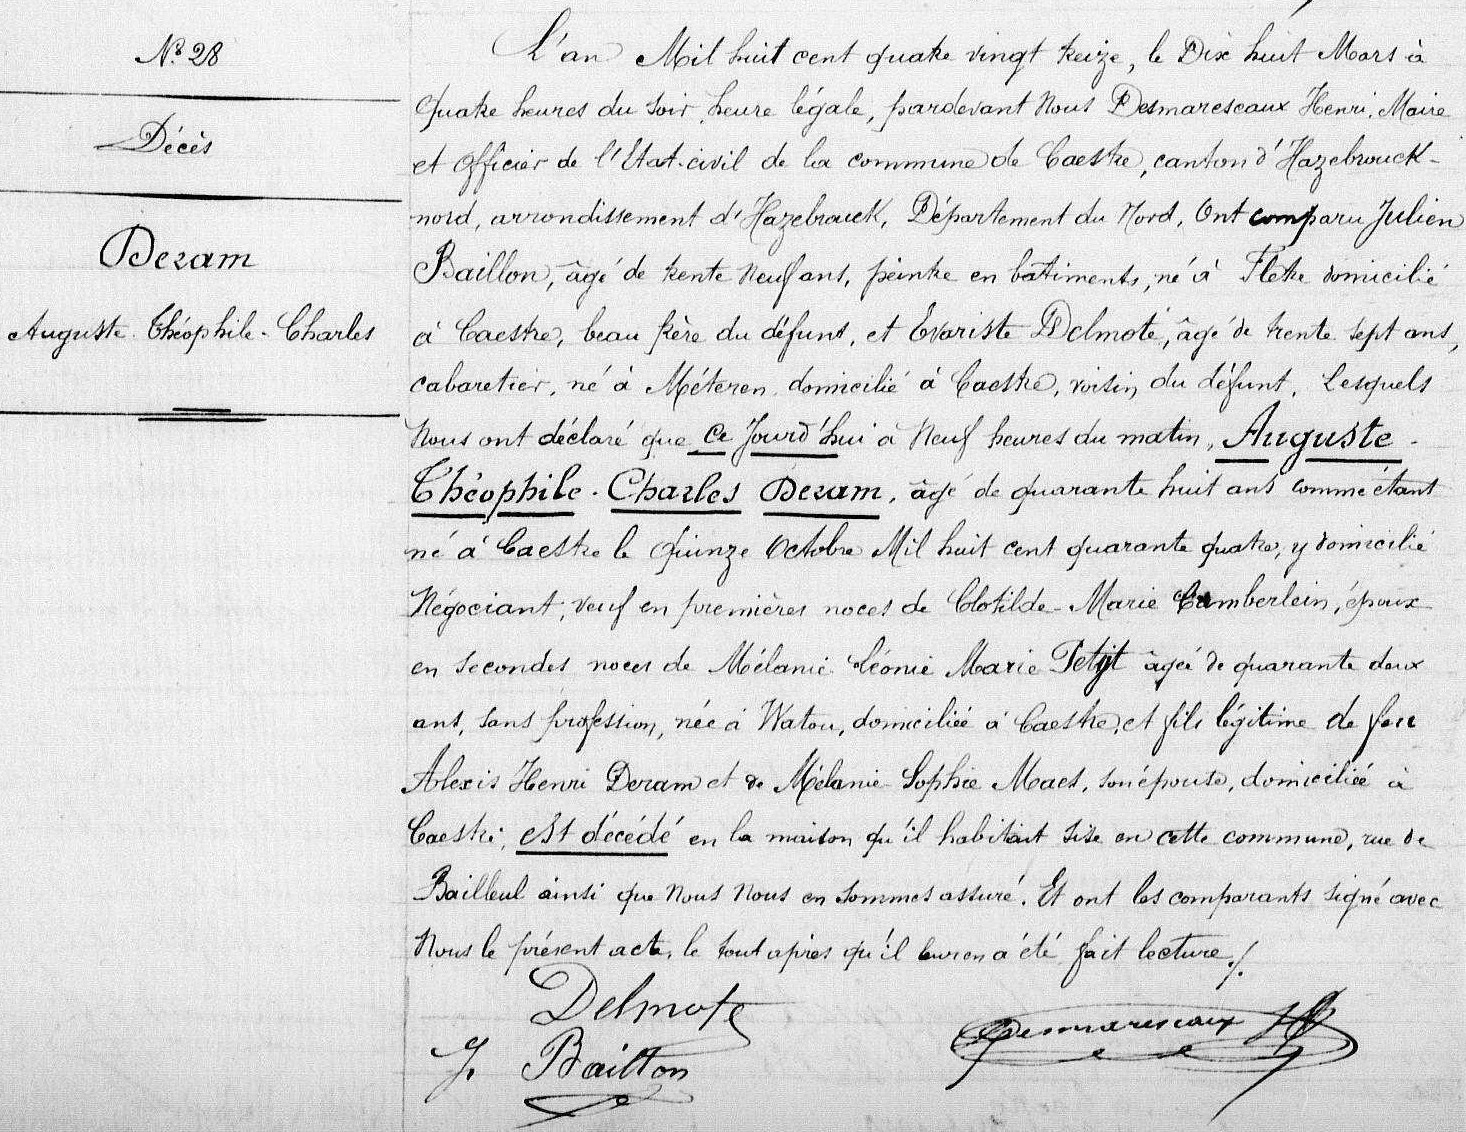 N° 28
Décès
Deram
Auguste Théophile-Charles
L'an Mil huit cent quatre vingt treize, le Dix huit Mars à
quatre heures du soir, heure légale, pardevant Nous Desmarescaux Henri, Maire
et Officier de l'Etat-civil de la commune de Caestre, canton d'Hazebrouck-
nord, arrondissement d'Hazebrouck, Département du Nord, Ont comparu Julien
Baillon, âgé de trente neuf ans, peintre en bâtiments, né à Fletre domicilié
à Caestre, beau frère du défunt, et Evariste Delmote, âgé de trente sept ans,
cabaretier, né à Méteren domicilié à Caestre, voisin du défunt, Lesquels
Nous ont déclaré que ce Jourd'hui à Neuf heures du matin, Auguste-
Théophile-Charles Deram, âgé de quarante huit ans comme étant
né à Caestre le Quinze Octobre Mil huit cent quarante quatre, y domicilié
Négociant, veuf en premières noces de Clotilde-Marie Camberlein, époux
en secondes noces de Mélanie Léonie Marie Petyt âgée de quarante deux
ans, sans profession, née à Watou, domiciliée à Caestre, et fils légitime de feu
Alexis Henri Deram et de Mélanie Sophie Maes, son épouse, domiciliée à
Caestre, est décédé en la maison qu'il habitait sise en cette commune, rue de
Bailleul ainsi que Nous Nous en sommes assuré. Et ont les comparants signé avec
Nous le présent acte, le tout après qu'il leur en a été fait lecture./.
Delmote
J. Baillon
Desmarescaux H